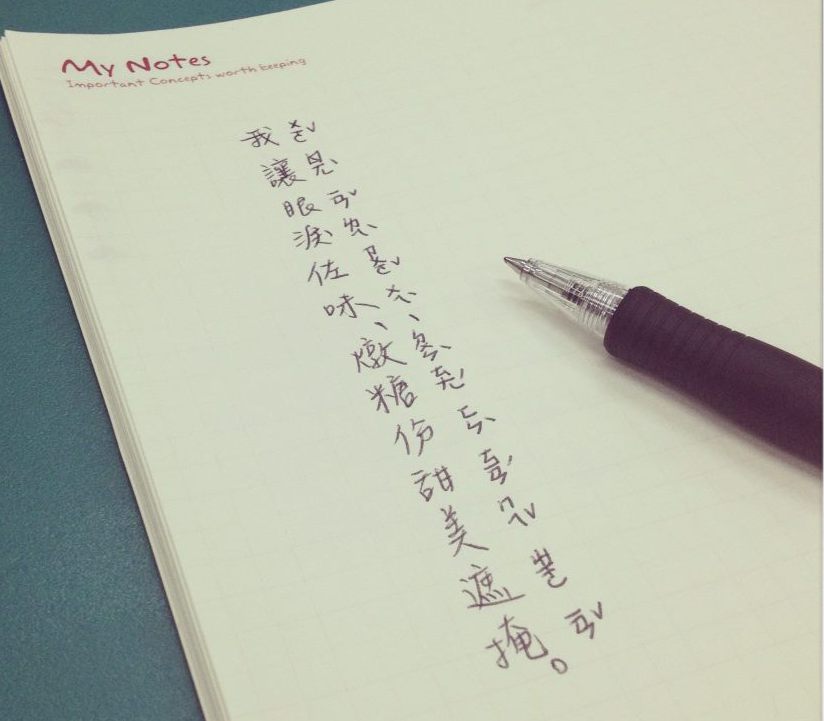 My Notes
Important Concepts worth keeping
我讓眼淚佐味、燉糖份甜美遮掩。
ㄨㄛˇ ㄖㄤˋ ㄧㄢˇ ㄌㄟˋ ㄗㄨㄛˇ ㄨㄟˋ ㄉㄨㄣˋ ㄊㄤˊ ㄈㄣˋ ㄊㄧㄢˊ ㄇㄟˇ ㄓㄜ ㄧㄢˇ